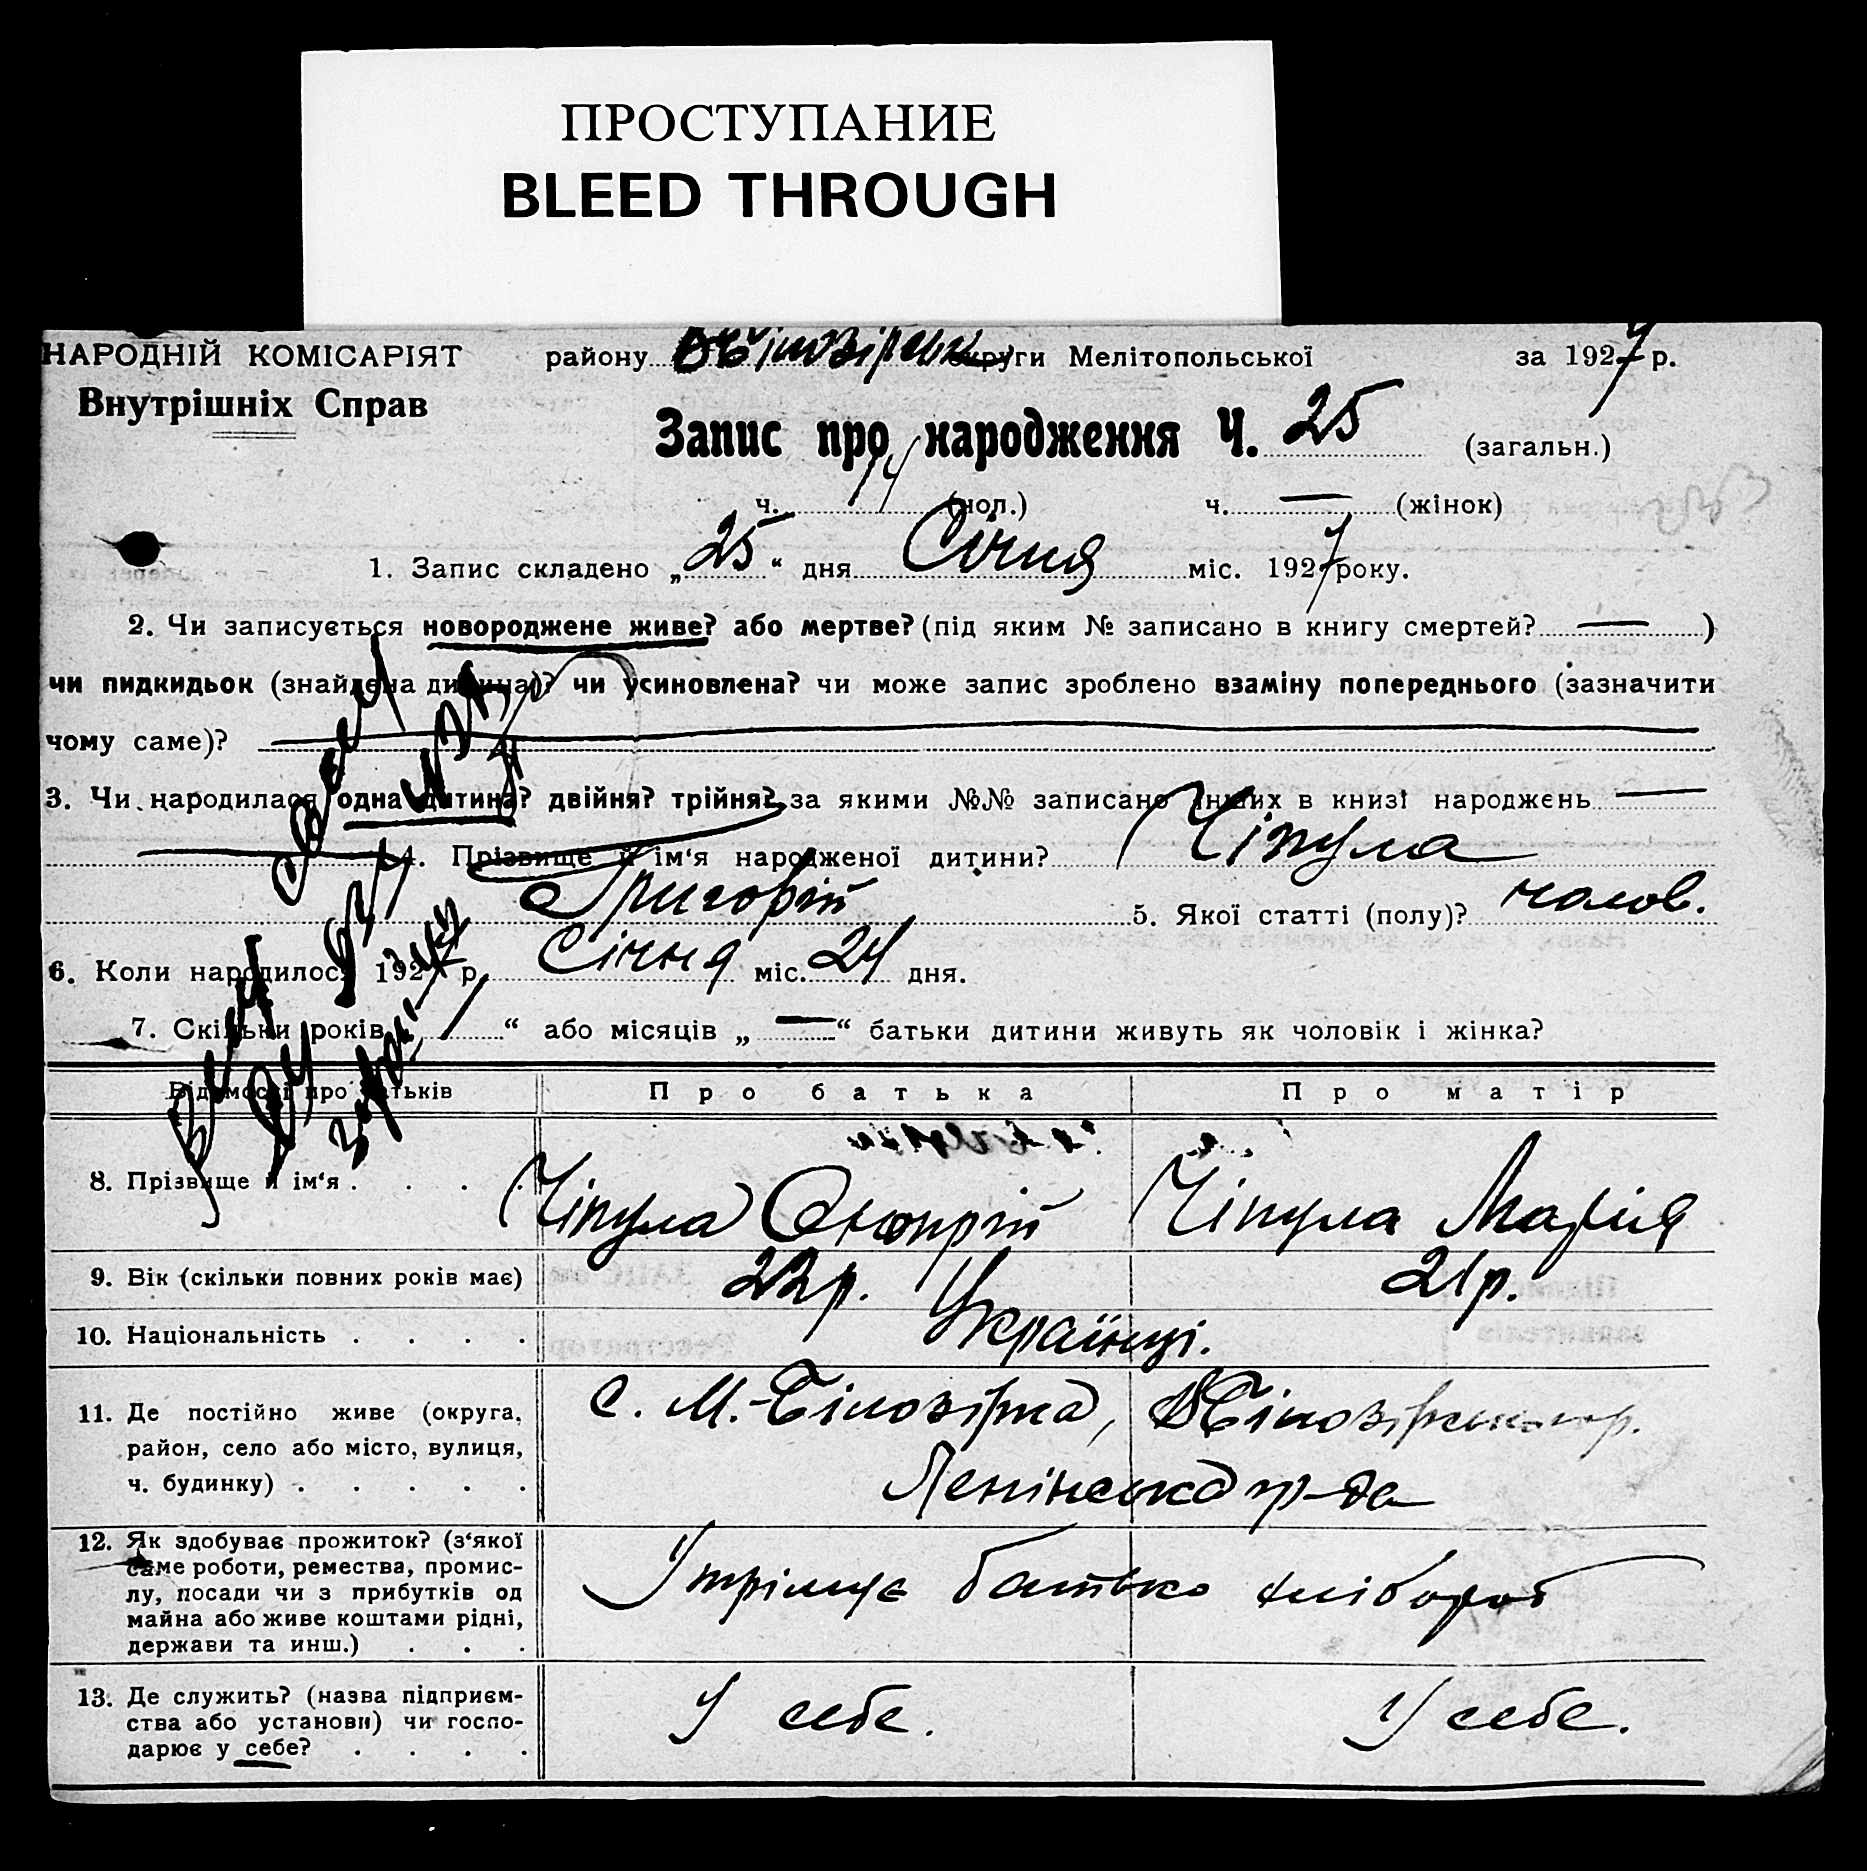 ПРОСТУПАНИЕ
BLEED THROUGH
НАРОДНІЙ КОМІСАРІЯТ району округи Мелітопольської за 1927 р.
Внутрішніх Справ
Запис про народження Ч. 25 (загальн.)
ч. 14 (чол.) ч. — (жінок)
1. Запис складено „25“ дня Січня міс. 1927 року.
2. Чи записується новороджене живе? або мертве? (під яким № записано в книгу смертей? — )
чи пидкидьок (знайдена дитина)? чи усиновлена? чи може запис зроблено взаміну попереднього (зазначити
чому саме)?
3. Чи народилася одна дитина? двійня? трійня? за якими №№ записано инших в книзі народжень —
4. Прізвище й ім‘я народженої дитини? Чіпула
Григорій 5. Якої статті (полу)? чолов.
6. Коли народилося 1927 р. Січня міс. 24 дня.
7. Скільки років „1“ або місяців „—“ батьки дитини живуть як чоловік і жінка?
Відомості про батьків Про батька Про матір
8. Прізвище й ім‘я . . . . Чіпула Чіпула Марія
9. Вік (скільки повних років має) 22 р. 21 р.
10. Національність . . . . Українці.
11. Де постійно живе (округа, с. М.-Білозірка,
район, село або місто, вулиця,
ч. будинку) . . . . . Ленінська
12. Як здобуває прожиток? (з‘якої
саме роботи, ремества, промис-
лу, посади чи з прибутків од батько хлібороб
майна або живе коштами рідні,
держави та инш.) . . .
13. Де служить? (назва підприєм-
ства або установи) чи госпо- У себе. У себе.
дарює у себе? . . . .